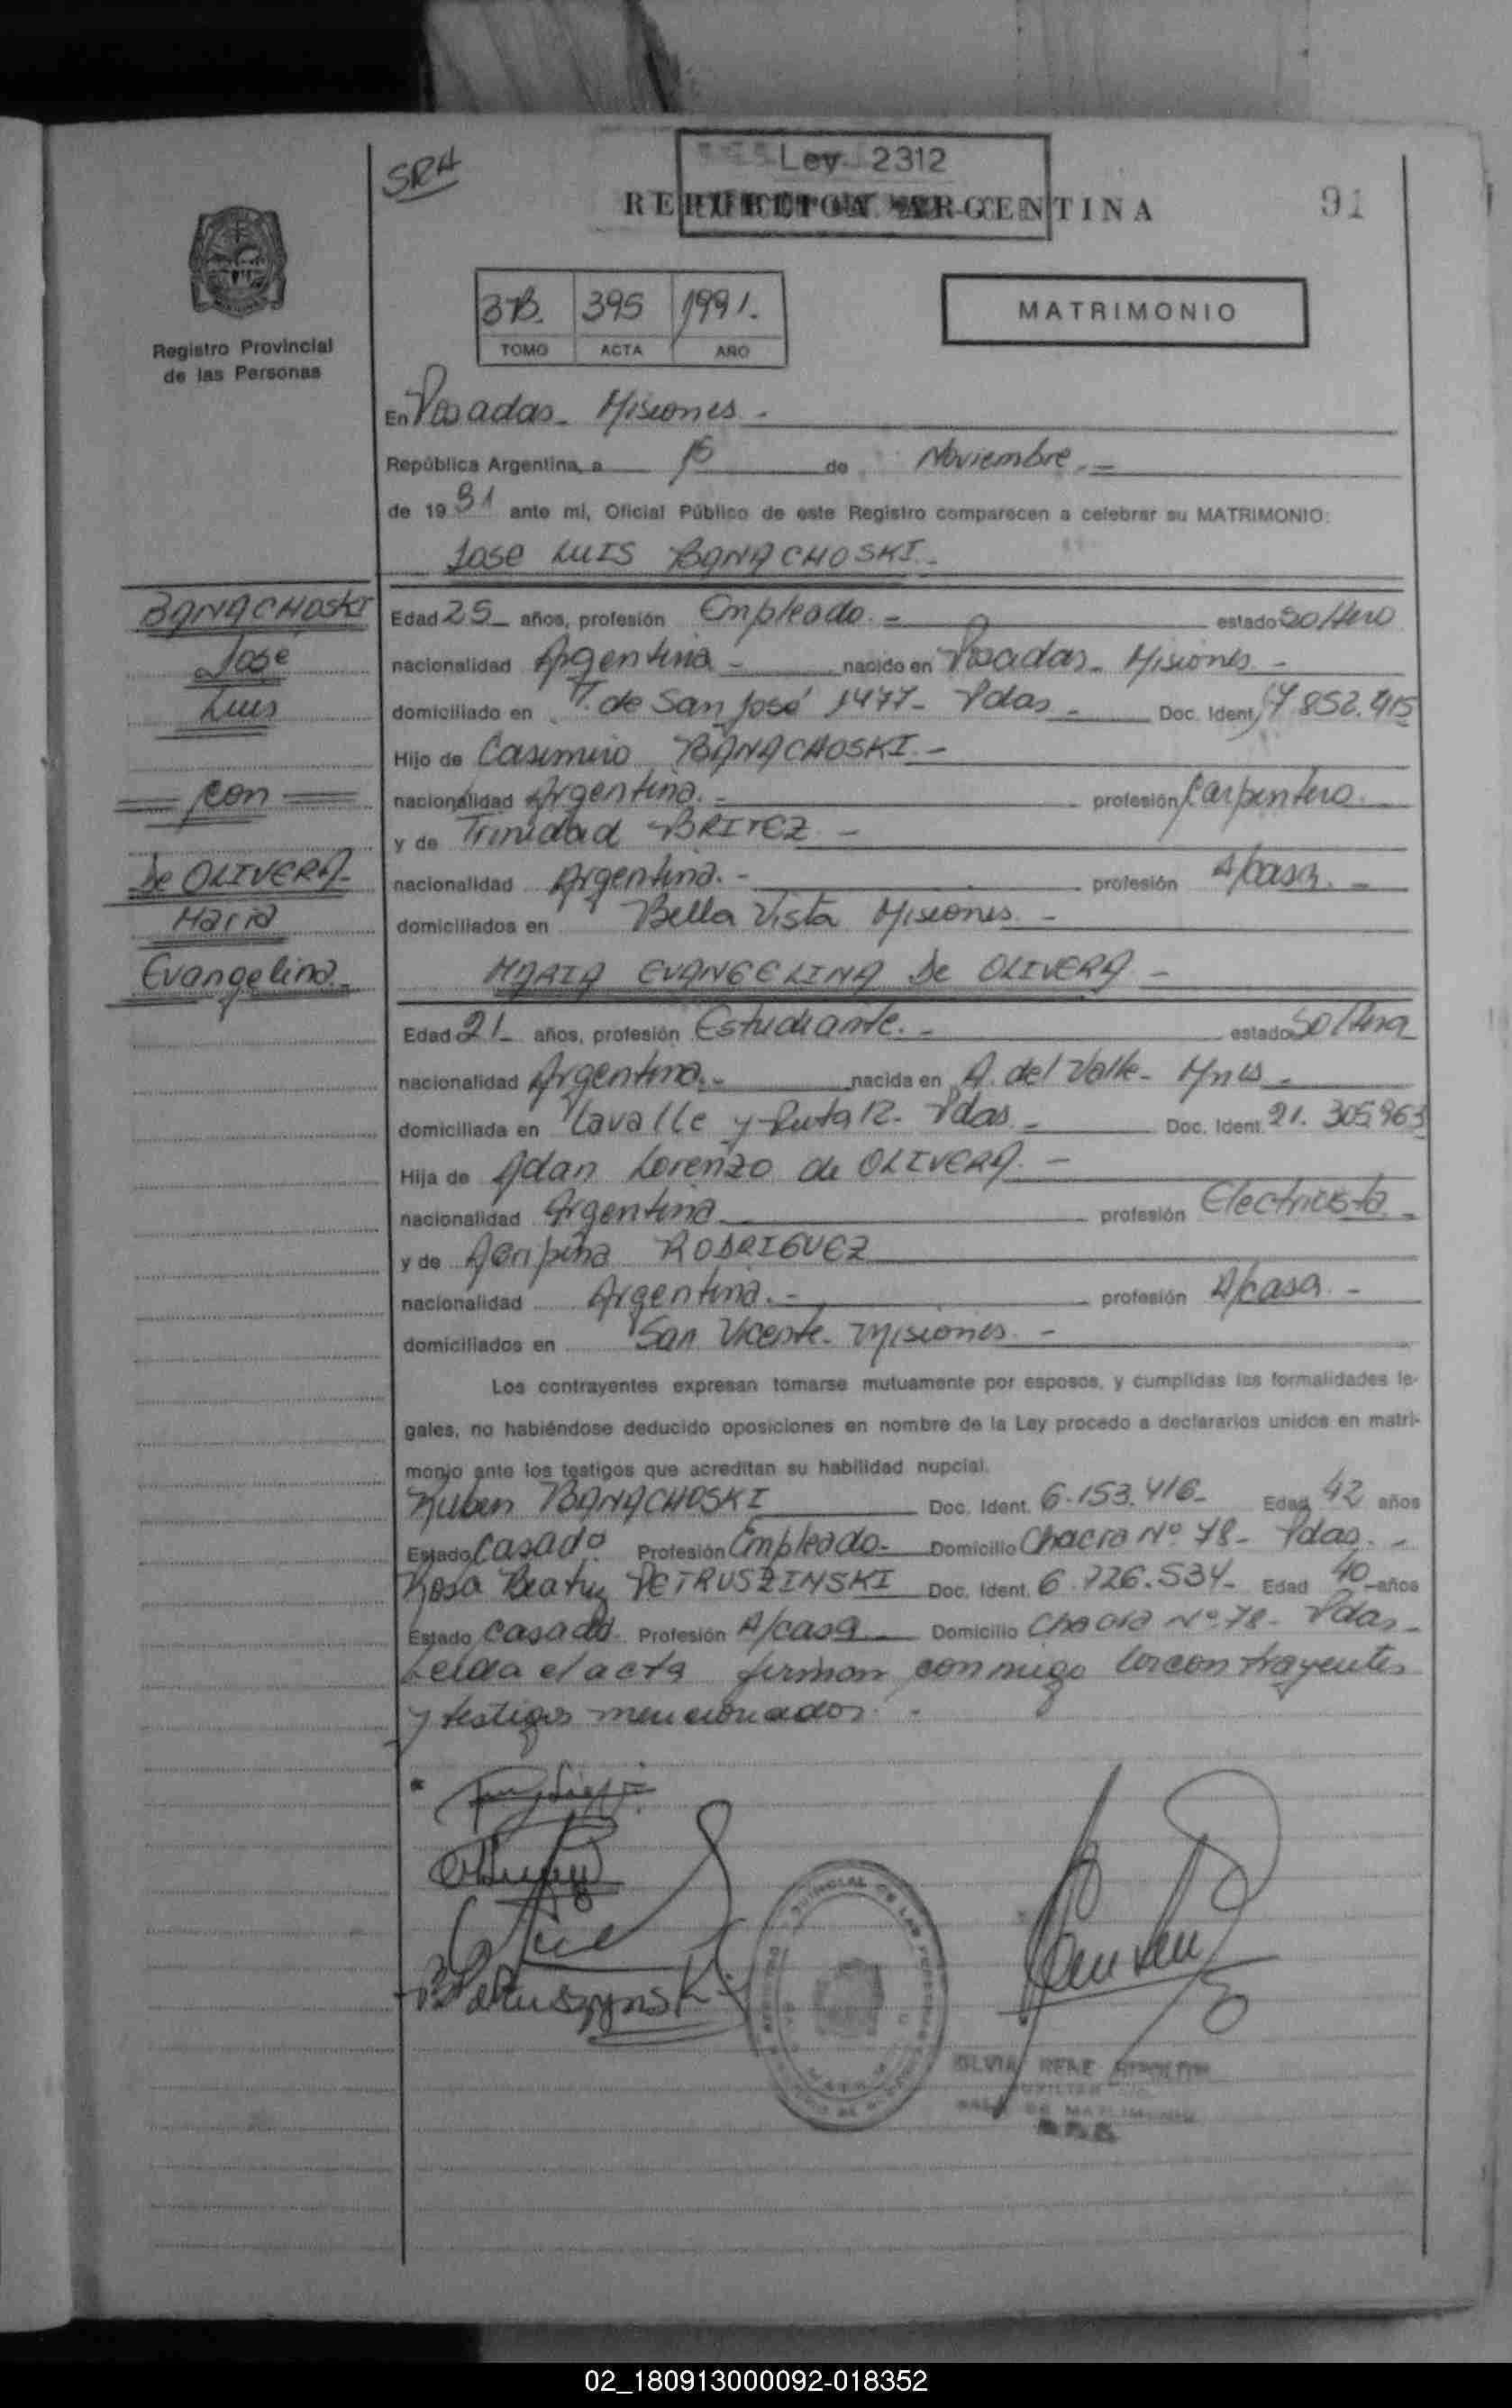 SRH
Ley 2312
REPUBLICA ARGENTINA
91
Registro Provincial
de las Personas
3B. 395 1991.
TOMO ACTA AÑO
MATRIMONIO
En Posadas - Misiones -
República Argentina, a 15 de Noviembre. -
de 1991 ante mí, Oficial Público de este Registro comparecen a celebrar su MATRIMONIO:
Jose LUIS BANACHOSKI -
BANACHOSKI
Jose
Luis
con
De OLIVERA
Maria
Evangelina
Edad 25 años, profesión Empleado. - estado Soltero
nacionalidad Argentina - nacido en Posadas - Misiones -
domiciliado en T. de San José 1477 - Pdas - Doc. Ident. 17.852.415
Hijo de Casimiro BANACHOSKI. -
nacionalidad Argentina. - profesión Carpintero.
y de Trinidad BRITEZ -
nacionalidad Argentina. - profesión A/casa. -
domiciliados en Bella Vista Misiones -
MARIA EVANGELINA De OLIVERA -
Edad 21 años, profesión Estudiante. - estado Soltera
nacionalidad Argentina. - nacida en A. del Valle - Mnes -
domiciliada en Lavalle y Ruta 12 - Pdas. - Doc. Ident. 21.305.963
Hija de Adan Lorenzo de OLIVERA. -
nacionalidad Argentina profesión Electricista -
y de Agripina RODRIGUEZ
nacionalidad Argentina. - profesión A/casa. -
domiciliados en San Vicente - Misiones -
Los contrayentes expresan tomarse mutuamente por esposos, y cumplidas las formalidades le-
gales, no habiéndose deducido oposiciones en nombre de la Ley procedo a declararlos unidos en matri-
monio ante los testigos que acreditan su habilidad nupcial.
Ruben BANACHOSKI Doc. Ident. 6.153.416 - Edad 42 años
Estado Casado Profesión Empleado - Domicilio Chacra Nº 78 - Pdas. -
Rosa Beatriz PETRUSZINSKI Doc. Ident. 6.726.534 - Edad 40 años
Estado Casada Profesión A/casa Domicilio Chacra Nº 78 - Pdas -
Leida el acta firman conmigo los contrayentes
y testigos mencionados. -
DE LAS PERSONAS
RENE
02_180913000092-018352